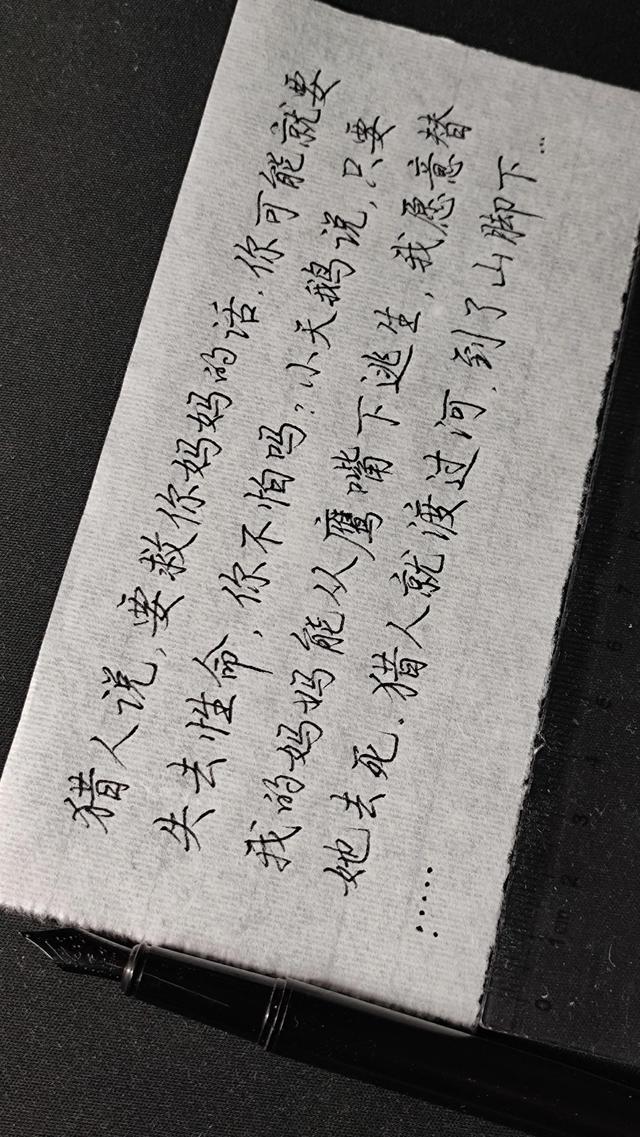 猎人说,要救你妈妈的话,你可能就要
失去性命,你不怕吗?小天鹅说,只要
我的妈妈能从鹰嘴下逃生,我愿意替
她去死.猎人就渡过河,到了山脚下...
.....
0 1cm 2 3 4 5 6 7